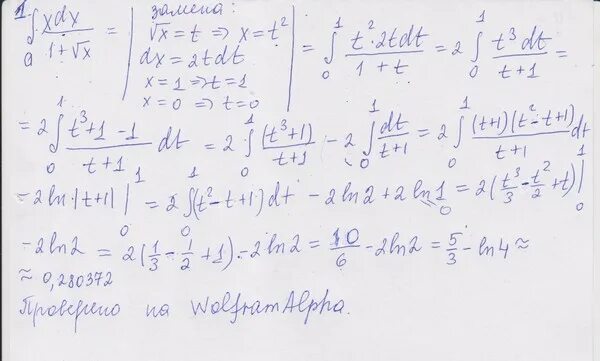 ∫₀¹ xdx/(1+√x) = | замена: √x = t ⇒ x = t² dx = 2tdt x = 1 ⇒ t = 1 x = 0 ⇒ t = 0 | = ∫₀¹ t²·2tdt/(1+t) = 2∫₀¹ t³dt/(t+1) =
= 2∫₀¹ (t³+1-1)/(t+1) dt = 2∫₀¹ (t³+1)/(t+1) - 2∫₀¹ dt/(t+1) = 2∫₀¹ (t+1)(t²-t+1)/(t+1) dt
- 2ln|t+1| |₀¹ = 2∫₀¹(t²-t+1)dt - 2ln2 + 2ln1 = 2(t³/3 - t²/2 + t)|₀¹
- 2ln2 = 2(1/3 - 1/2 + 1) - 2ln2 = 10/6 - 2ln2 = 5/3 - ln4 ≈
≈ 0,280372
Проверено на WolframAlpha.